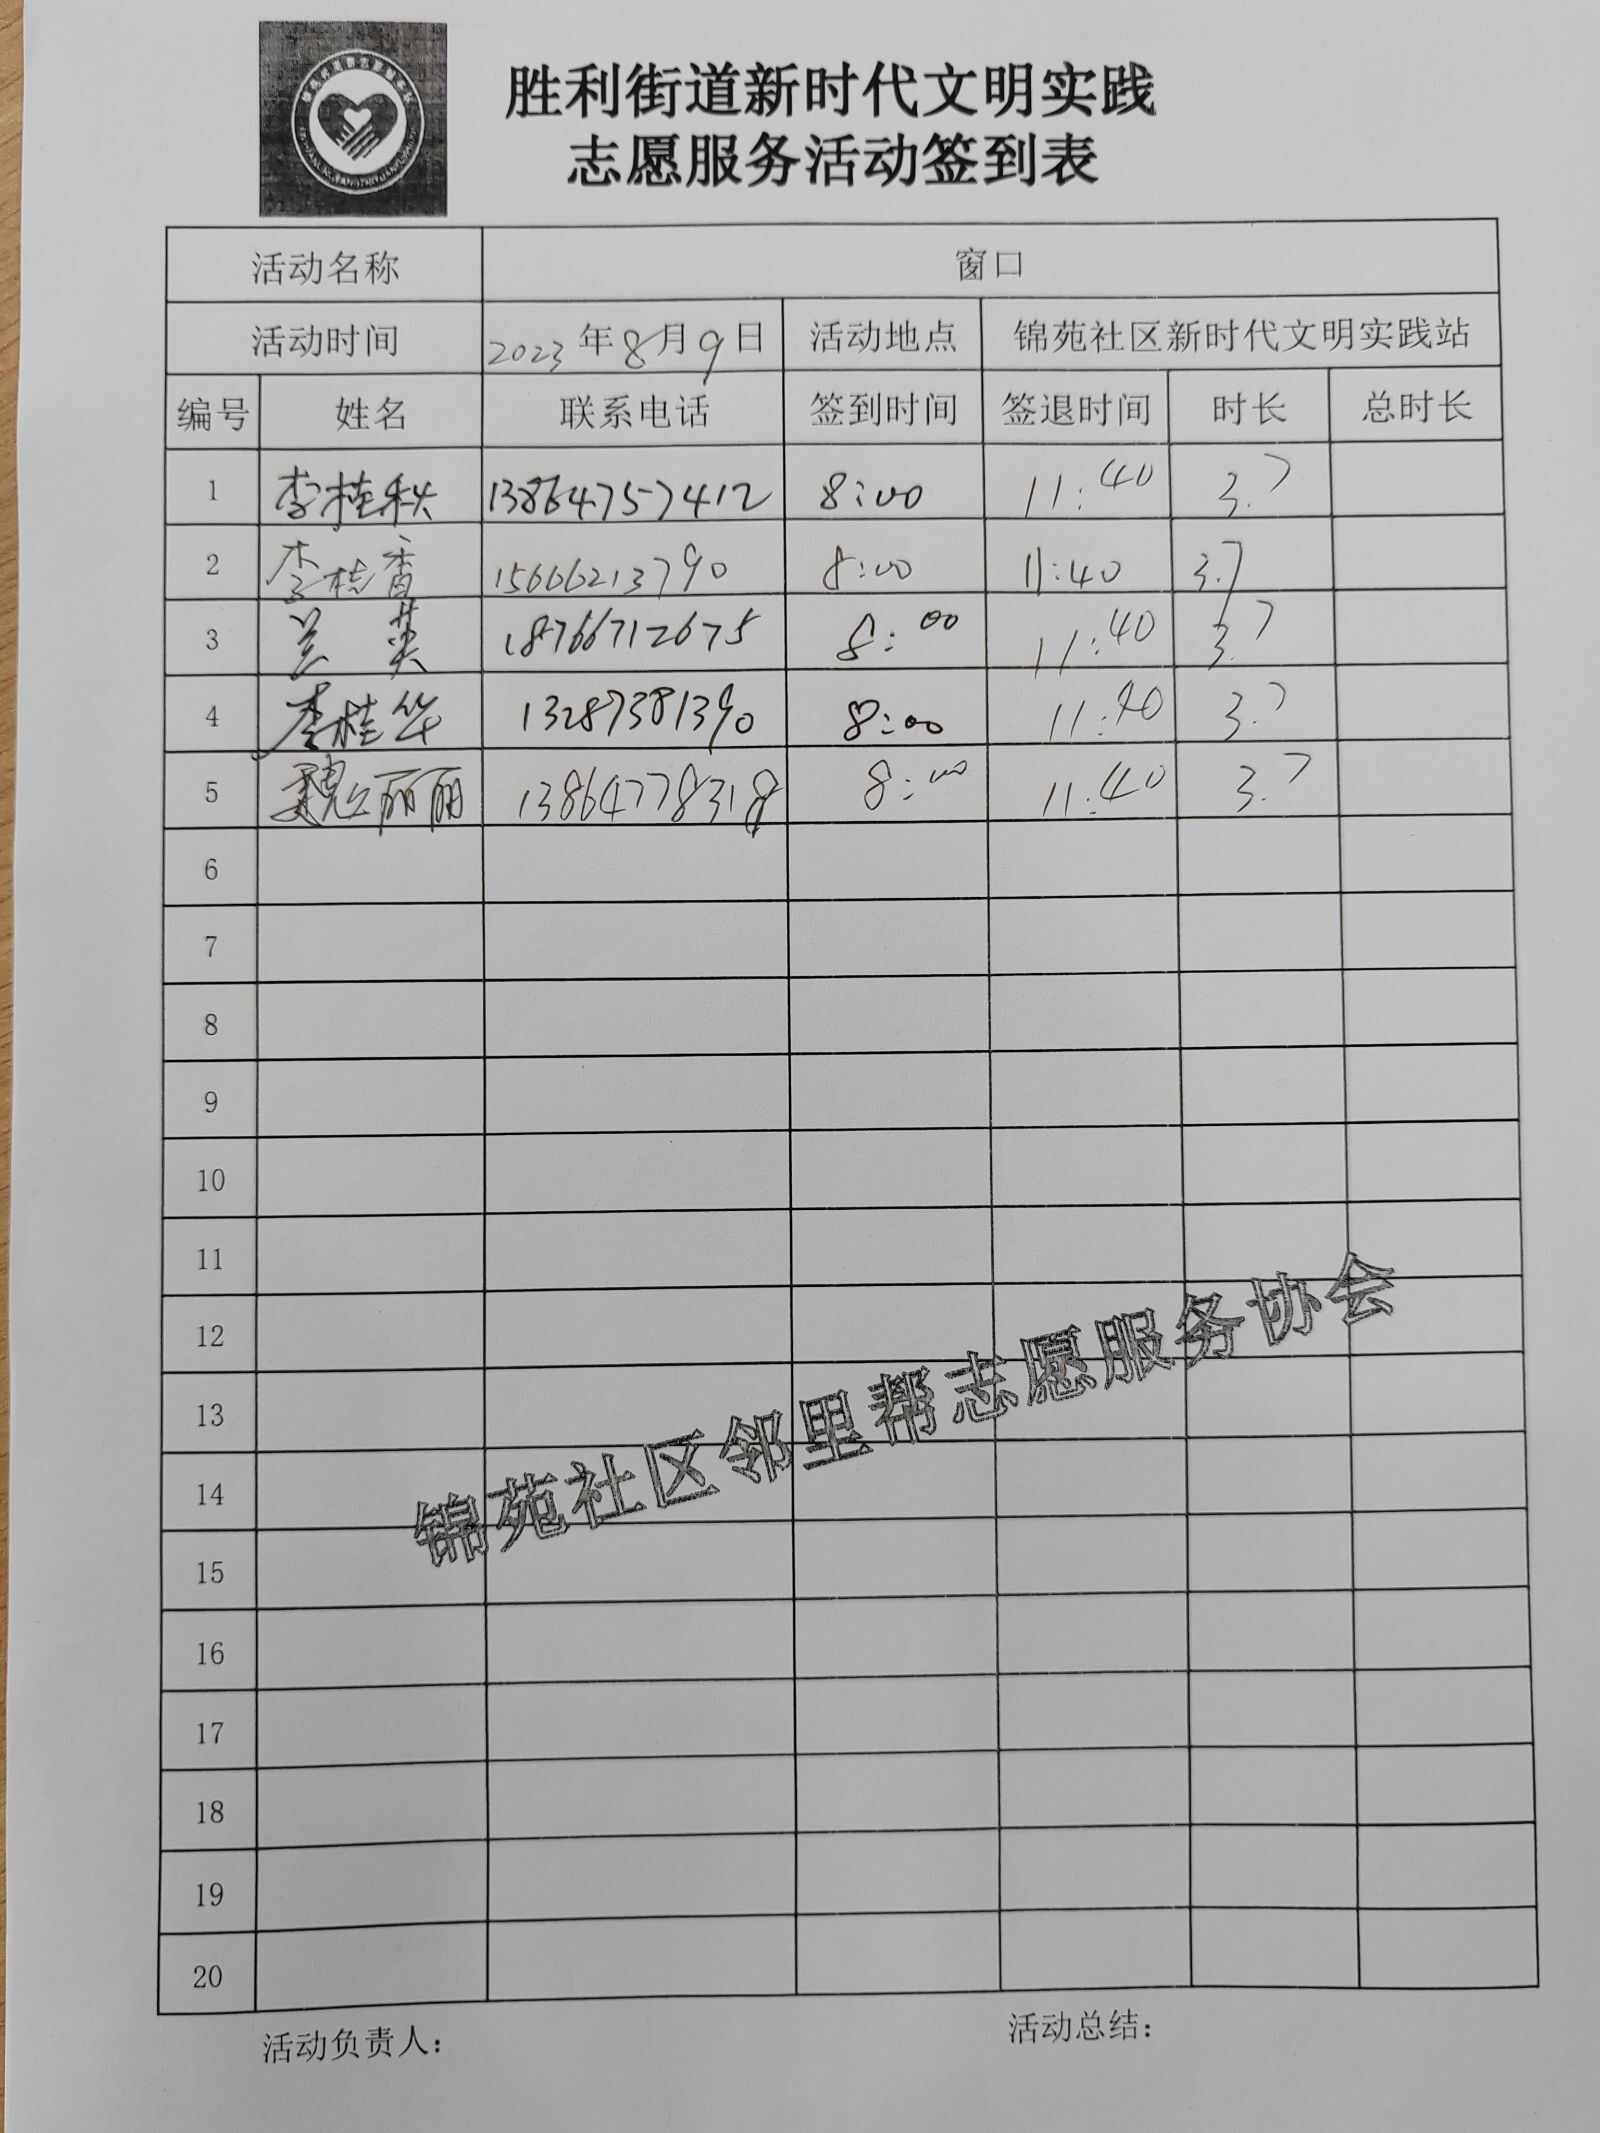 胜利街道新时代文明实践
志愿服务活动签到表
活动名称 窗口
活动时间 2023年8月9日 活动地点 锦苑社区新时代文明实践站
编号 姓名 联系电话 签到时间 签退时间 时长 总时长
1 李桂秋 13864757412 8:00 11:40 3.7
2 李桂香 15666213790 8:00 11:40 3.7
3 兰英 18766712675 8:00 11:40 3.7
4 李桂华 13287381390 8:00 11:40 3.7
5 魏丽丽 13864778318 8:00 11:40 3.7
6
7
8
9
10
11
12
13
14
15
16
17
18
19
20
锦苑社区邻里帮志愿服务协会
活动负责人: 活动总结: